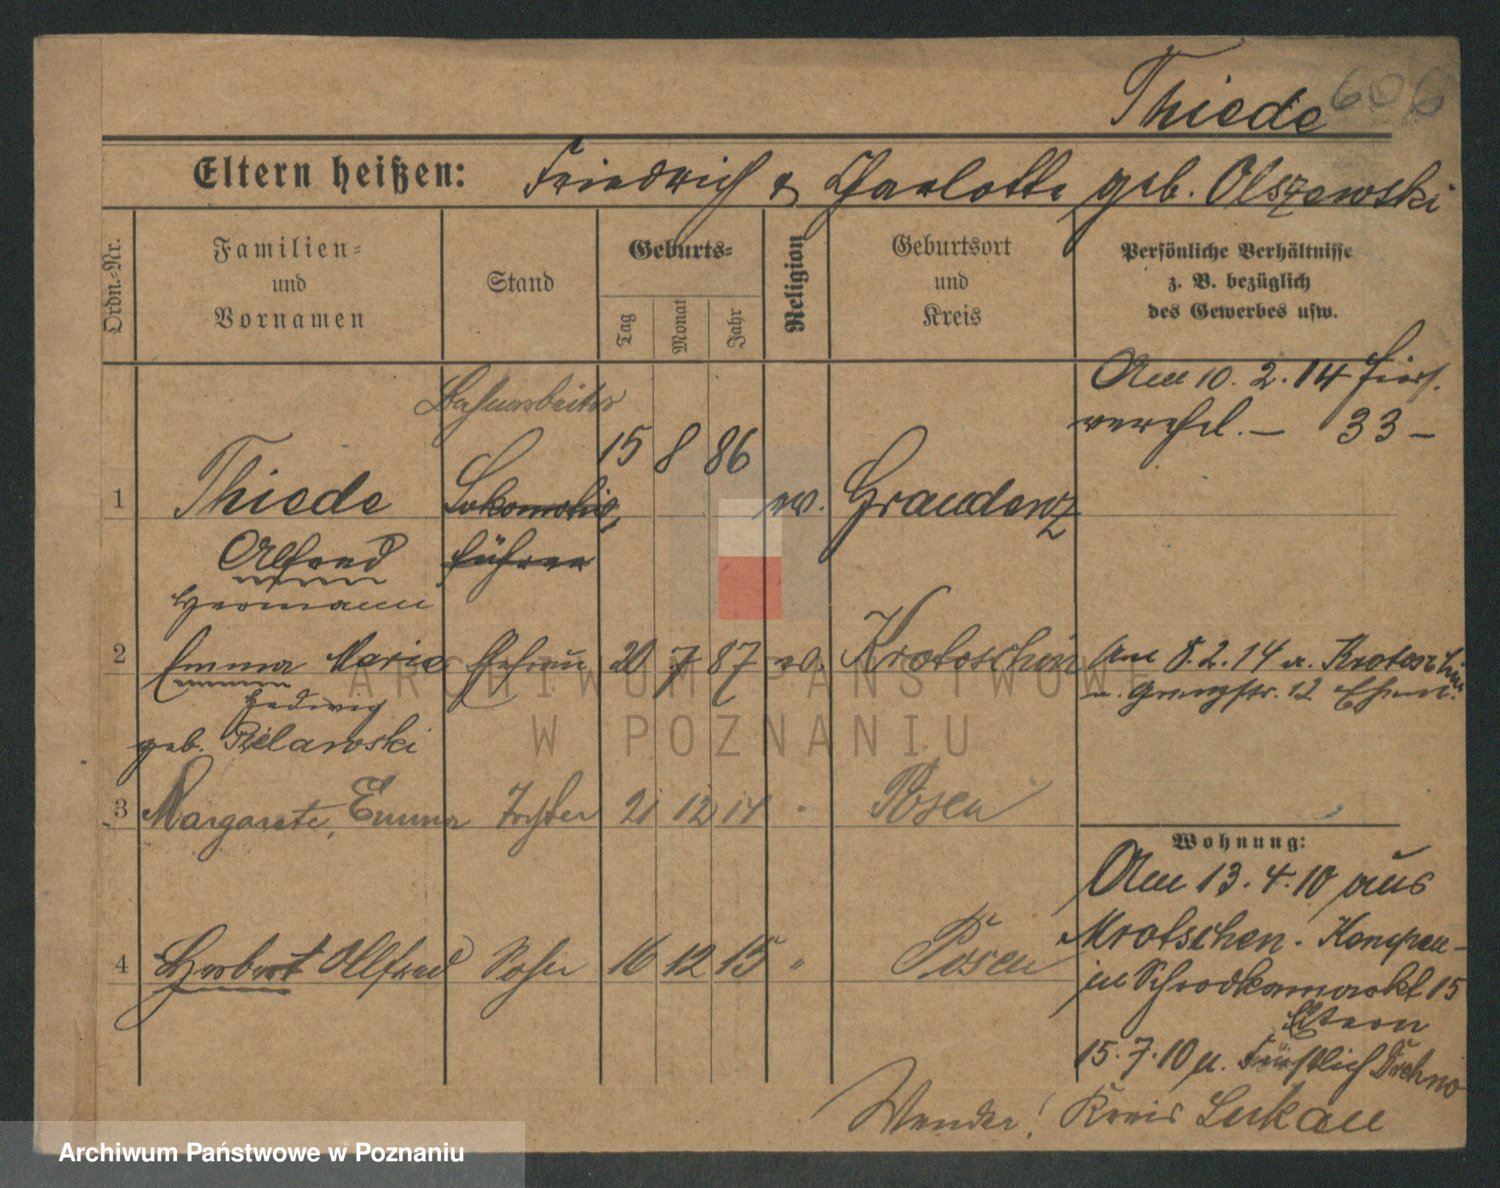 Thiede 606
Eltern heißen: Friedrich & Charlotte geb. Olszewski
Ordn.-Nr.
Familien-
und
Vornamen
Stand
Geburts-
Tag
Monat
Jahr
Religion
Geburtsort
und
Kreis
Persönliche Verhältnisse
z. B. bezüglich
des Gewerbes usw.
Am 10. 2. 14 hier
verehel. — 33 —
Bahnarbeiter
1 Thiede Lokomotiv 15 8 86 ev. Graudenz
Alfred führer
Hermann
2 Emma Marie Ehefrau 20 7 87 ev. Krotoschin Am 8.2.14 a. Krotoschin
n. Grenzstr. 12 Ehem.
Hedwig
geb. Pilarski
3 Margarete, Emma Tochter 21 12 14 " Posen
4 Herbert Alfred Sohn 16 12 15 " Posen
Wohnung:
Am 13. 4. 10 aus
Mrotschen
in Schrodkamarkt 15
Eltern
15. 7. 10 n. Fürstlich Drehno
Wenden! Kreis Lukau
ARCHIWUM PAŃSTWOWE
W POZNANIU
Archiwum Państwowe w Poznaniu